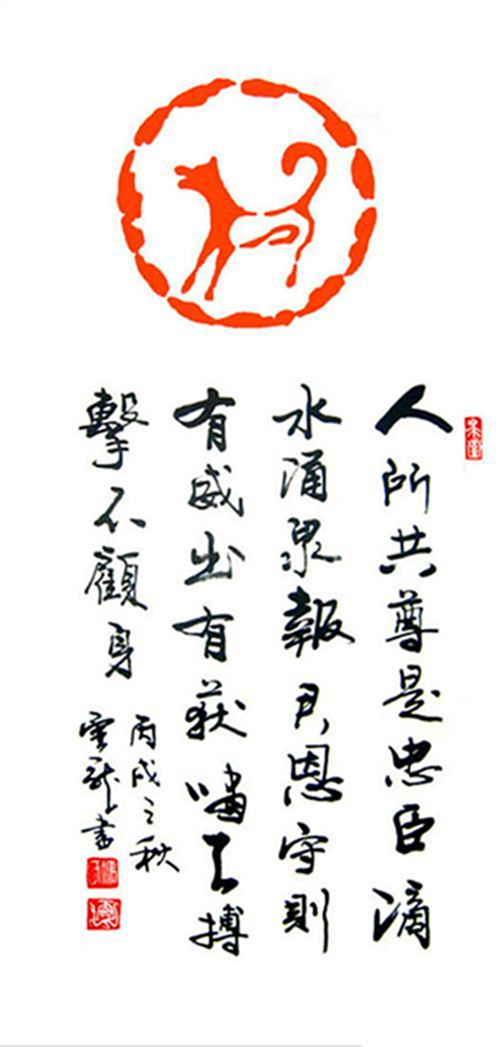 人所共尊是忠臣滴
水涌泉報君恩守則
有威出有获嘯天搏
擊不顧身
丙戌之秋
雲龍書